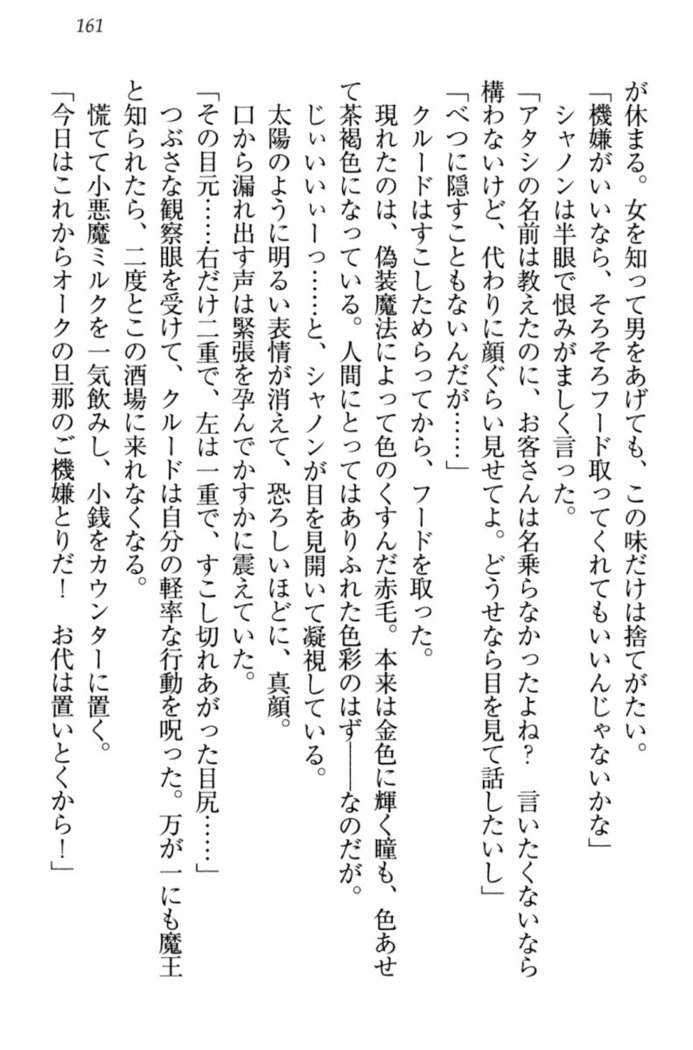 161
が休まる。女を知って男をあげても、この味だけは捨てがたい。
「機嫌がいいなら、そろそろフード取ってくれてもいいんじゃないかな」
シャノンは半眼で恨みがましく言った。
「アタシの名前は教えたのに、お客さんは名乗らなかったよね？　言いたくないなら
構わないけど、代わりに顔ぐらい見せてよ。どうせなら目を見て話したいし」
「べつに隠すこともないんだが……」
クルードはすこしためらってから、フードを取った。
現れたのは、偽装魔法によって色のくすんだ赤毛。本来は金色に輝く瞳も、色あせ
て茶褐色になっている。人間にとってはありふれた色彩のはず――なのだが。
じぃいいいぃーっ……と、シャノンが目を見開いて凝視している。
太陽のように明るい表情が消えて、恐ろしいほどに、真顔。
口から漏れ出す声は緊張を孕んでかすかに震えていた。
「その目元……右だけ二重で、左は一重で、すこし切れあがった目尻……」
つぶさな観察眼を受けて、クルードは自分の軽率な行動を呪った。万が一にも魔王
と知られたら、二度とこの酒場に来れなくなる。
慌てて小悪魔ミルクを一気飲みし、小銭をカウンターに置く。
「今日はこれからオークの旦那のご機嫌とりだ！　お代は置いとくから！」